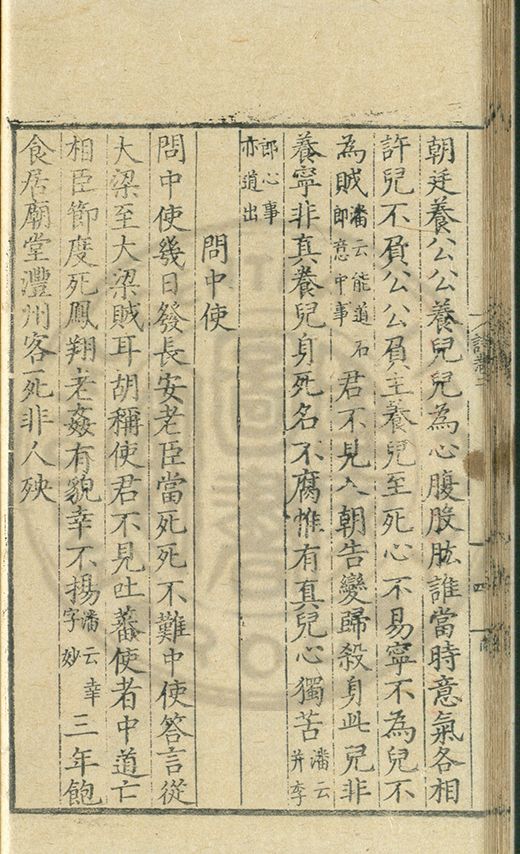 朝廷養公公養兒兒為心腹股肱誰當時意氣各相
許兒不負公公負主養兒至死心不易寧不為兒不
為賊潘云能道石郎意中事君不見入朝告變歸殺身此兒非
養寧非真養兒身死名不腐惟有真兒心獨苦潘云并李
郎心事亦道出
問中使
問中使幾日發長安老臣當死死不難中使答言從
大梁至大梁賊耳胡稱使君不見吐蕃使者中道亡
相臣節度死鳳翔老姦有貌幸不揚潘云幸字妙三年飽
食居廟堂灃州客死非人殃